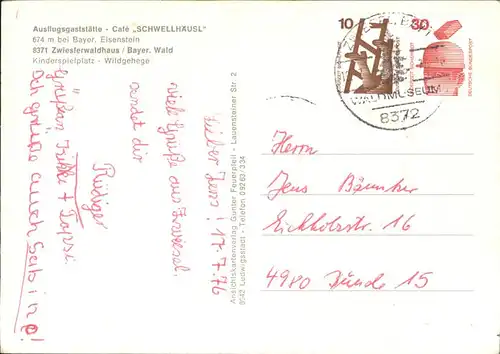 Ausflugsgaststätte - Café „SCHWELLHÄUSL"
674 m bei Bayer. Eisenstein
8371 Zwiesferwaldhaus / Bayer. Wald
Kinderspielplatz - Wildgehege
Lieber Jens! 17.7.76
viele Grüße aus Zwiesel.
sendet dir
Rüdiger
Grüße an
Ich grüße auch
Ansichtskartenverlag Gunter Feuerpfeil - Lauensteiner Str. 2
8642 Ludwigsstadt - Telefon 09263/334
10
30
DEUTSCHE BUNDESPOST
WALDMUSEUM
8372
Herrn
Jens
Eichholzstr. 16
4980 Bünde 15